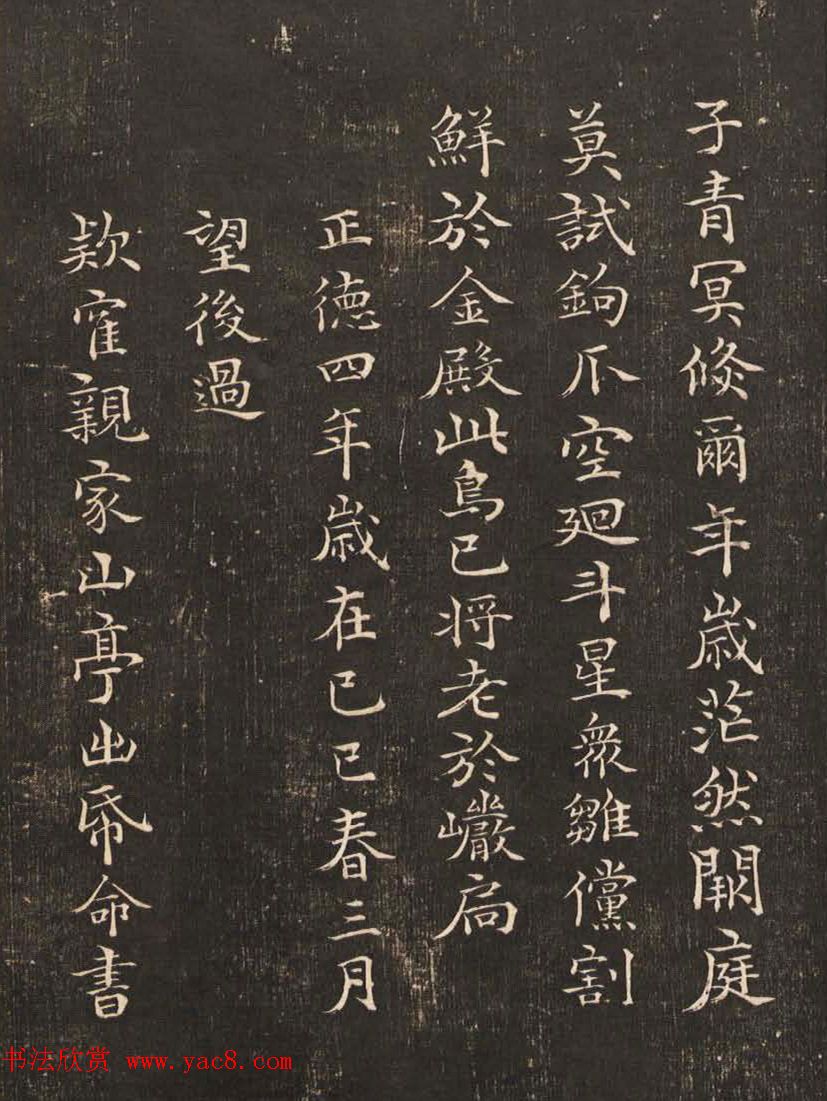 子青冥倐爾年歲茫然闕庭
莫試鉤爪空廻斗星衆雛儻割
鮮於金殿此鳥已將老於巖扃
正德四年歲在己巳春三月
望後過
款寉親家山亭出帋命書
书法欣赏 www.yac8.com